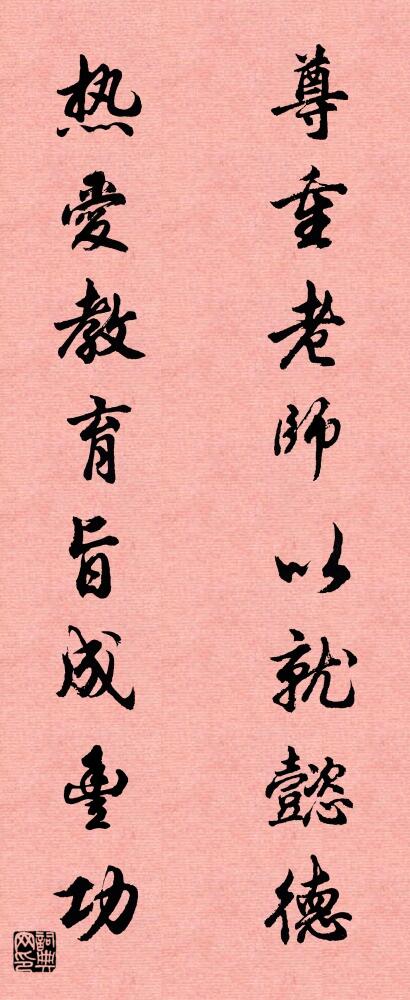 尊重老師以就懿德
热愛教育旨成豐功
詞典网印